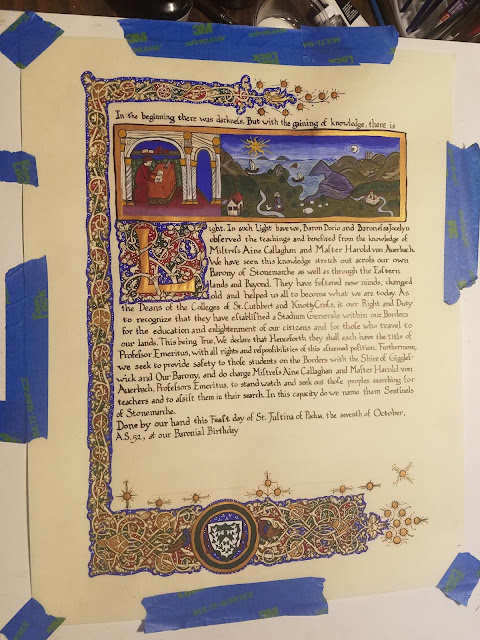 In the beginning there was darkneſs. But with the gaining of knowledge, there is
Light. In such Light have we, Baron Dorio and Baroneſsa Jocelyn
observed the teachings and benefited from the knowledge of
Miſtreſs Aine Callaghan and Maſter Harold von Auerbach.
We have seen this knowledge stretch out acroſs our own
Barony of Stonemarche as well as through the Eaſtern
lands and Beyond. They have foſtered new minds, changed
old and helped us all to become what we are today. As
the Deans of the Colleges of St. Cuthbert and KnottyCroſs, it our Right and Duty
to recognize that they have eſtabliſhed a Stadium Generale within our Borders
for the education and enlightenment of our citizens and for thoſe who travel to
our lands. This being True, We declare that Henceforth they shall each have the title of
Profeſsor Emeritus, with all rights and reſponſibilities of this eſteemed poſition. Furthermore,
we seek to provide safety to thoſe students on the Borders with the Shire of Giggleſ-
wick and Our Barony, and do charge Miſtreſs Aine Callaghan and Maſter Harold von
Auerbach, Profeſsors Emeritus, to stand watch and seek out thoſe peoples searching for
teachers and to aſsiſt them in their search. In this capacity do we name them Sentinels
of Stonemarche.
Done by our hand this Feaſt day of St. Juſtina of Padua, the seventh of October,
A.S. 52, at our Baronial Birthday